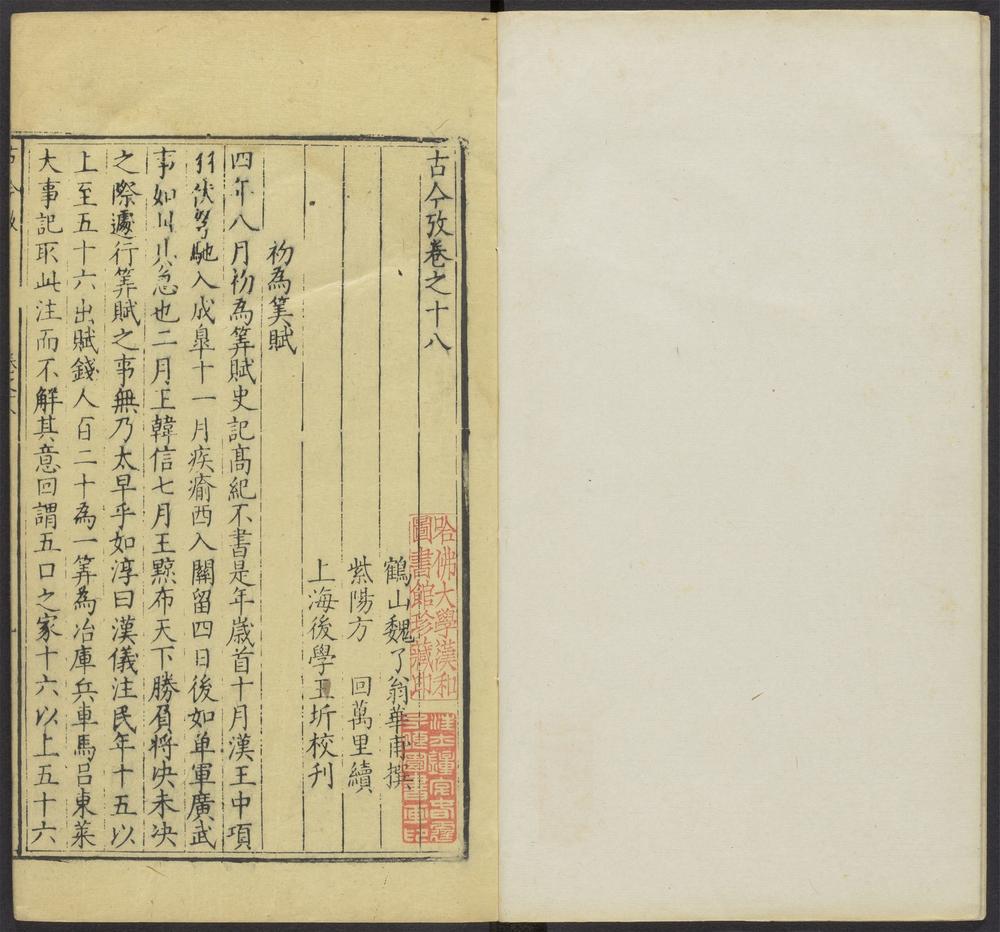 古今攷卷之十八
鶴山魏了翁華甫撰
紫陽方 回萬里續
上海後學王圻校刊
初為筭賦
四年八月初為筭賦史記髙紀不書是年歳首十月漢王中項
羽伏弩馳入成臯十一月疾瘉西入關留四日後如单軍廣武
事如此其急也二月王韓信七月王黥布天下勝負將决未决
之際遽行筭賦之事無乃太早乎如淳曰漢儀注民年十五以
上至五十六出賦錢人百二十為一筭為治庫兵車馬吕東萊
大事記取此注而不解其意回謂五口之家十六以上五十六
哈佛大學漢和
圖書館珍藏印